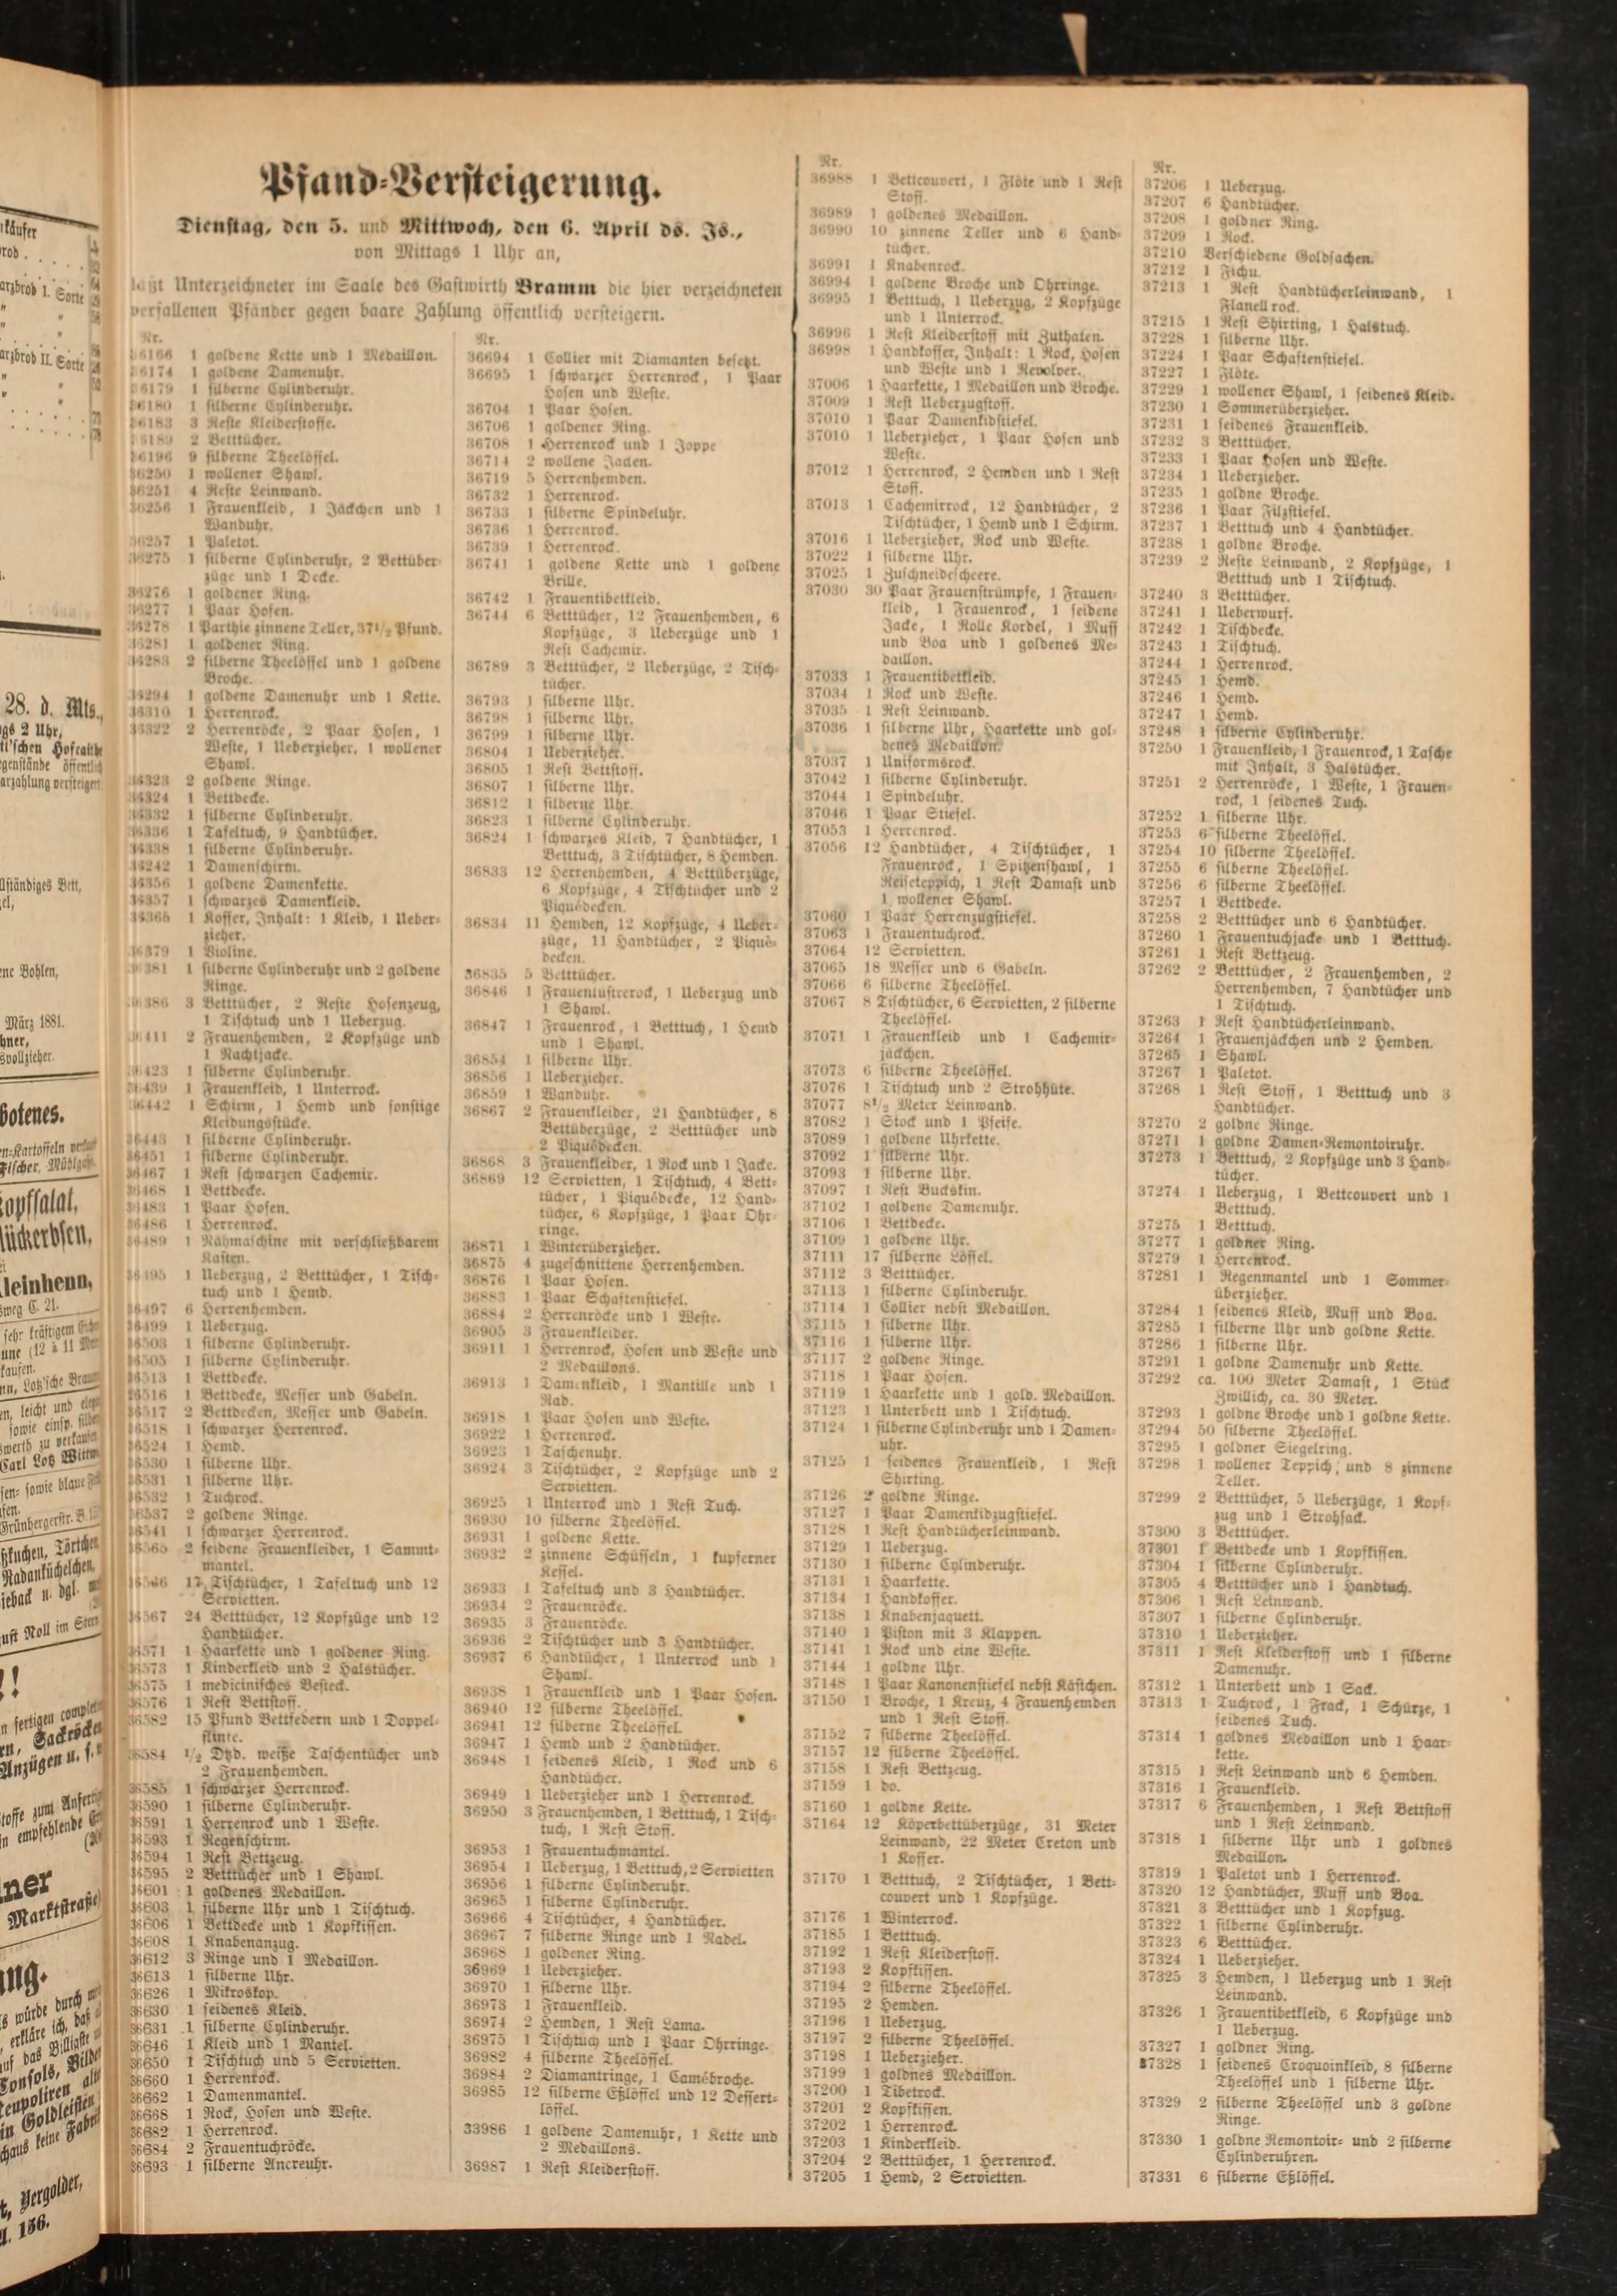 Pfand-Versteigerung.
Dienstag, den 5. und Mittwoch, den 6. April ds. Js.,
von Mittags 1 Uhr an,
läßt Unterzeichneter im Saale des Gastwirth Bramm die hier verzeichneten
verfallenen Pfänder gegen baare Zahlung öffentlich versteigern.
Nr.
36166 1 goldene Kette und 1 Medaillon.
36174 1 goldene Damenuhr.
36179 1 silberne Cylinderuhr.
36180 1 silberne Cylinderuhr.
36183 3 Reste Kleiderstoffe.
36189 2 Betttücher.
36196 9 silberne Theelöffel.
36250 1 wollener Shawl.
36251 4 Reste Leinwand.
36256 1 Frauenkleid, 1 Jäckchen und 1
Wanduhr.
36257 1 Paletot.
36275 1 silberne Cylinderuhr, 2 Bettüber-
züge und 1 Decke.
36276 1 goldener Ring.
36277 1 Paar Hosen.
36278 1 Parthie zinnene Teller, 37½ Pfund.
36281 1 goldener Ring.
36283 2 silberne Theelöffel und 1 goldene
Broche.
36294 1 goldene Damenuhr und 1 Kette.
36310 1 Herrenrock.
36322 2 Herrenröcke, 2 Paar Hosen, 1
Weste, 1 Ueberzieher, 1 wollener
Shawl.
36323 2 goldene Ringe.
36324 1 Bettdecke.
36332 1 silberne Cylinderuhr.
36336 1 Tafeltuch, 9 Handtücher.
36338 1 silberne Cylinderuhr.
36242 1 Damenschirm.
36356 1 goldene Damenkette.
36357 1 schwarzes Damenkleid.
36365 1 Koffer, Inhalt: 1 Kleid, 1 Ueber-
zieher.
36379 1 Violine.
36381 1 silberne Cylinderuhr und 2 goldene
Ringe.
36386 3 Betttücher, 2 Reste Hosenzeug,
1 Tischtuch und 1 Ueberzug.
36411 2 Frauenhemden, 2 Kopfzüge und
1 Nachtjacke.
36423 1 silberne Cylinderuhr.
36439 1 Frauenkleid, 1 Unterrock.
36442 1 Schirm, 1 Hemd und sonstige
Kleidungsstücke.
36443 1 silberne Cylinderuhr.
36451 1 silberne Cylinderuhr.
36467 1 Rest schwarzen Cachemir.
36468 1 Bettdecke.
36483 1 Paar Hosen.
36486 1 Herrenrock.
36489 1 Nähmaschine mit verschließbarem
Kasten.
36495 1 Ueberzug, 2 Betttücher, 1 Tisch-
tuch und 1 Hemd.
36497 6 Herrenhemden.
36499 1 Ueberzug.
36503 1 silberne Cylinderuhr.
36505 1 silberne Cylinderuhr.
36513 1 Bettdecke.
36516 1 Bettdecke, Messer und Gabeln.
36517 2 Bettdecken, Messer und Gabeln.
36518 1 schwarzer Herrenrock.
36524 1 Hemd.
36530 1 silberne Uhr.
36531 1 silberne Uhr.
36532 1 Tuchrock.
36537 2 goldene Ringe.
36541 1 schwarzer Herrenrock.
36565 2 seidene Frauenkleider, 1 Sammt-
mantel.
36566 17 Tischtücher, 1 Tafeltuch und 12
Servietten.
36567 24 Betttücher, 12 Kopfzüge und 12
Handtücher.
36571 1 Haarkette und 1 goldener Ring.
36573 1 Kinderkleid und 2 Halstücher.
36575 1 medicinisches Besteck.
36576 1 Rest Bettstoff.
36582 15 Pfund Bettfedern und 1 Doppel-
flinte.
36584 ½ Dtzd. weiße Taschentücher und
2 Frauenhemden.
36585 1 schwarzer Herrenrock.
36590 1 silberne Cylinderuhr.
36591 1 Herrenrock und 1 Weste.
36593 1 Regenschirm.
36594 1 Rest Bettzeug.
36595 2 Betttücher und 1 Shawl.
36601 1 goldenes Medaillon.
36603 1 silberne Uhr und 1 Tischtuch.
36606 1 Bettdecke und 1 Kopfkissen.
36608 1 Knabenanzug.
36612 3 Ringe und 1 Medaillon.
36613 1 silberne Uhr.
36626 1 Mikroskop.
36630 1 seidenes Kleid.
36631 1 silberne Cylinderuhr.
36646 1 Kleid und 1 Mantel.
36650 1 Tischtuch und 5 Servietten.
36660 1 Herrenrock.
36662 1 Damenmantel.
36668 1 Rock, Hosen und Weste.
36682 1 Herrenrock.
36684 2 Frauentuchröcke.
36693 1 silberne Ancreuhr.
Nr.
36694 1 Collier mit Diamanten besetzt.
36695 1 schwarzer Herrenrock, 1 Paar
Hosen und Weste.
36704 1 Paar Hosen.
36706 1 goldener Ring.
36708 1 Herrenrock und 1 Joppe
36714 2 wollene Jacken.
36719 5 Herrenhemden.
36732 1 Herrenrock.
36733 1 silberne Spindeluhr.
36736 1 Herrenrock.
36739 1 Herrenrock.
36741 1 goldene Kette und 1 goldene
Brille.
36742 1 Frauentibetkleid.
36744 6 Betttücher, 12 Frauenhemden, 6
Kopfzüge, 3 Ueberzüge und 1
Rest Cachemir.
36789 3 Betttücher, 2 Ueberzüge, 2 Tisch-
tücher.
36793 1 silberne Uhr.
36798 1 silberne Uhr.
36799 1 silberne Uhr.
36804 1 Ueberzieher.
36805 1 Rest Bettstoff.
36807 1 silberne Uhr.
36812 1 silberne Uhr.
36823 1 silberne Cylinderuhr.
36824 1 schwarzes Kleid, 7 Handtücher, 1
Betttuch, 3 Tischtücher, 8 Hemden.
36833 12 Herrenhemden, 4 Bettüberzüge,
6 Kopfzüge, 4 Tischtücher und 2
Piquédecken.
36834 11 Hemden, 12 Kopfzüge, 4 Ueber-
züge, 11 Handtücher, 2 Piqué-
decken.
36835 5 Betttücher.
36846 1 Frauenlustrerock, 1 Ueberzug und
1 Shawl.
36847 1 Frauenrock, 1 Betttuch, 1 Hemd
und 1 Shawl.
36854 1 silberne Uhr.
36856 1 Ueberzieher.
36859 1 Wanduhr.
36867 2 Frauenkleider, 21 Handtücher, 8
Bettüberzüge, 2 Betttücher und
2 Piquédecken.
36868 3 Frauenkleider, 1 Rock und 1 Jacke.
36869 12 Servietten, 1 Tischtuch, 4 Bett-
tücher, 1 Piquédecke, 12 Hand-
tücher, 6 Kopfzüge, 1 Paar Ohr-
ringe.
36871 1 Winterüberzieher.
36875 4 zugeschnittene Herrenhemden.
36876 1 Paar Hosen.
36883 1 Paar Schaftenstiefel.
36884 2 Herrenröcke und 1 Weste.
36905 3 Frauenkleider.
36911 1 Herrenrock, Hosen und Weste und
2 Medaillons.
36913 1 Damenkleid, 1 Mantille und 1
Rad.
36918 1 Paar Hosen und Weste.
36922 1 Herrenrock.
36923 1 Taschenuhr.
36924 3 Tischtücher, 2 Kopfzüge und 2
Servietten.
36925 1 Unterrock und 1 Rest Tuch.
36930 10 silberne Theelöffel.
36931 1 goldene Kette.
36932 2 zinnene Schüsseln, 1 kupferner
Kessel.
36933 1 Tafeltuch und 3 Handtücher.
36934 2 Frauenröcke.
36935 3 Frauenröcke.
36936 2 Tischtücher und 3 Handtücher.
36937 6 Handtücher, 1 Unterrock und 1
Shawl.
36938 1 Frauenkleid und 1 Paar Hosen.
36940 12 silberne Theelöffel.
36941 12 silberne Theelöffel.
36947 1 Hemd und 2 Handtücher.
36948 1 seidenes Kleid, 1 Rock und 6
Handtücher.
36949 1 Ueberzieher und 1 Herrenrock.
36950 3 Frauenhemden, 1 Betttuch, 1 Tisch-
tuch, 1 Rest Stoff.
36953 1 Frauentuchmantel.
36954 1 Ueberzug, 1 Betttuch, 2 Servietten
36956 1 silberne Cylinderuhr.
36965 1 silberne Cylinderuhr.
36966 4 Tischtücher, 4 Handtücher.
36967 7 silberne Ringe und 1 Nadel.
36968 1 goldener Ring.
36969 1 Ueberzieher.
36970 1 silberne Uhr.
36973 1 Frauenkleid.
36974 2 Hemden, 1 Rest Lama.
36975 1 Tischtuch und 1 Paar Ohrringe.
36982 4 silberne Theelöffel.
36984 2 Diamantringe, 1 Camébroche.
36985 12 silberne Eßlöffel und 12 Dessert-
löffel.
33986 1 goldene Damenuhr, 1 Kette und
2 Medaillons.
36987 1 Rest Kleiderstoff.
Nr.
36988 1 Bettcouvert, 1 Flöte und 1 Rest
Stoff.
36989 1 goldenes Medaillon.
36990 10 zinnene Teller und 6 Hand-
tücher.
36991 1 Knabenrock.
36994 1 goldene Broche und Ohrringe.
36995 1 Betttuch, 1 Ueberzug, 2 Kopfzüge
und 1 Unterrock.
36996 1 Rest Kleiderstoff mit Zuthaten.
36998 1 Handkoffer, Inhalt: 1 Rock, Hosen
und Weste und 1 Revolver.
37006 1 Haarkette, 1 Medaillon und Broche.
37009 1 Rest Ueberzugstoff.
37010 1 Paar Damenkidstiefel.
37010 1 Ueberzieher, 1 Paar Hosen und
Weste.
37012 1 Herrenrock, 2 Hemden und 1 Rest
Stoff.
37013 1 Cachemirrock, 12 Handtücher, 2
Tischtücher, 1 Hemd und 1 Schirm.
37016 1 Ueberzieher, Rock und Weste.
37022 1 silberne Uhr.
37025 1 Zuschneidescheere.
37030 30 Paar Frauenstrümpfe, 1 Frauen-
kleid, 1 Frauenrock, 1 seidene
Jacke, 1 Rolle Kordel, 1 Muff
und Boa und 1 goldenes Me-
daillon.
37033 1 Frauentibetkleid.
37034 1 Rock und Weste.
37035 1 Rest Leinwand.
37036 1 silberne Uhr, Haarkette und gol-
denes Medaillon.
37037 1 Uniformsrock.
37042 1 silberne Cylinderuhr.
37044 1 Spindeluhr.
37046 1 Paar Stiefel.
37053 1 Herrenrock.
37056 12 Handtücher, 4 Tischtücher, 1
Frauenrock, 1 Spitzenshawl, 1
Reiseteppich, 1 Rest Damast und
1 wollener Shawl.
37060 1 Paar Herrenzugstiefel.
37063 1 Frauentuchrock.
37064 12 Servietten.
37065 18 Messer und 6 Gabeln.
37066 6 silberne Theelöffel.
37067 8 Tischtücher, 6 Servietten, 2 silberne
Theelöffel.
37071 1 Frauenkleid und 1 Cachemir-
jäckchen.
37073 6 silberne Theelöffel.
37076 1 Tischtuch und 2 Strohhüte.
37077 8½ Meter Leinwand.
37082 1 Stock und 1 Pfeife.
37089 1 goldene Uhrkette.
37092 1 silberne Uhr.
37093 1 silberne Uhr.
37097 1 Rest Buckskin.
37102 1 goldene Damenuhr.
37106 1 Bettdecke.
37109 1 goldene Uhr.
37111 17 silberne Löffel.
37112 3 Betttücher.
37113 1 silberne Cylinderuhr.
37114 1 Collier nebst Medaillon.
37115 1 silberne Uhr.
37116 1 silberne Uhr.
37117 2 goldene Ringe.
37118 1 Paar Hosen.
37119 1 Haarkette und 1 gold. Medaillon.
37123 1 Unterbett und 1 Tischtuch.
37124 1 silberne Cylinderuhr und 1 Damen-
uhr.
37125 1 seidenes Frauenkleid, 1 Rest
Shirting.
37126 2 goldne Ringe.
37127 1 Paar Damenkidzugstiefel.
37128 1 Rest Handtücherleinwand.
37129 1 Ueberzug.
37130 1 silberne Cylinderuhr.
37131 1 Haarkette.
37134 1 Handkoffer.
37138 1 Knabenjaquett.
37140 1 Piston mit 3 Klappen.
37141 1 Rock und eine Weste.
37144 1 goldne Uhr.
37148 1 Paar Kanonenstiefel nebst Kästchen.
37150 1 Broche, 1 Kreuz, 4 Frauenhemden
und 1 Rest Stoff.
37152 7 silberne Theelöffel.
37157 12 silberne Theelöffel.
37158 1 Rest Bettzeug.
37159 1 do.
37160 1 goldne Kette.
37164 12 Köperbettüberzüge, 31 Meter
Leinwand, 22 Meter Creton und
1 Koffer.
37170 1 Betttuch, 2 Tischtücher, 1 Bett-
couvert und 1 Kopfzüge.
37176 1 Winterrock.
37185 1 Betttuch.
37192 1 Rest Kleiderstoff.
37193 2 Kopfkissen.
37194 2 silberne Theelöffel.
37195 2 Hemden.
37196 1 Ueberzug.
37197 2 silberne Theelöffel.
37198 1 Ueberzieher.
37199 1 goldnes Medaillon.
37200 1 Tibetrock.
37201 2 Kopfkissen.
37202 1 Herrenrock.
37203 1 Kinderkleid.
37204 2 Betttücher, 1 Herrenrock.
37205 1 Hemd, 2 Servietten.
Nr.
37206 1 Ueberzug.
37207 6 Handtücher.
37208 1 goldner Ring.
37209 1 Rock.
37210 Verschiedene Goldsachen.
37212 1 Fichu.
37213 1 Rest Handtücherleinwand, 1
Flanellrock.
37215 1 Rest Shirting, 1 Halstuch.
37228 1 silberne Uhr.
37224 1 Paar Schaftenstiefel.
37227 1 Flöte.
37229 1 wollener Shawl, 1 seidenes Kleid.
37230 1 Sommerüberzieher.
37231 1 seidenes Frauenkleid.
37232 3 Betttücher.
37233 1 Paar Hosen und Weste.
37234 1 Ueberzieher.
37235 1 goldne Broche.
37236 1 Paar Filzstiefel.
37237 1 Betttuch und 4 Handtücher.
37238 1 goldne Broche.
37239 2 Reste Leinwand, 2 Kopfzüge, 1
Betttuch und 1 Tischtuch.
37240 3 Betttücher.
37241 1 Ueberwurf.
37242 1 Tischdecke.
37243 1 Tischtuch.
37244 1 Herrenrock.
37245 1 Hemd.
37246 1 Hemd.
37247 1 Hemd.
37248 1 silberne Cylinderuhr.
37250 1 Frauenkleid, 1 Frauenrock, 1 Tasche
mit Inhalt, 3 Halstücher.
37251 2 Herrenröcke, 1 Weste, 1 Frauen-
rock, 1 seidenes Tuch.
37252 1 silberne Uhr.
37253 6 silberne Theelöffel.
37254 10 silberne Theelöffel.
37255 6 silberne Theelöffel.
37256 6 silberne Theelöffel.
37257 1 Bettdecke.
37258 2 Betttücher und 6 Handtücher.
37260 1 Frauentuchjacke und 1 Betttuch.
37261 1 Rest Bettzeug.
37262 2 Betttücher, 2 Frauenhemden, 2
Herrenhemden, 7 Handtücher und
1 Tischtuch.
37263 1 Rest Handtücherleinwand.
37264 1 Frauenjäckchen und 2 Hemden.
37265 1 Shawl.
37267 1 Paletot.
37268 1 Rest Stoff, 1 Betttuch und 3
Handtücher.
37270 2 goldne Ringe.
37271 1 goldne Damen-Remontoiruhr.
37273 1 Betttuch, 2 Kopfzüge und 3 Hand-
tücher.
37274 1 Ueberzug, 1 Bettcouvert und 1
Betttuch.
37275 1 Betttuch.
37277 1 goldner Ring.
37279 1 Herrenrock.
37281 1 Regenmantel und 1 Sommer-
überzieher.
37284 1 seidenes Kleid, Muff und Boa.
37285 1 silberne Uhr und goldne Kette.
37286 1 silberne Uhr.
37291 1 goldne Damenuhr und Kette.
37292 ca. 100 Meter Damast, 1 Stück
Zwillich, ca. 30 Meter.
37293 1 goldne Broche und 1 goldne Kette.
37294 50 silberne Theelöffel.
37295 1 goldner Siegelring.
37298 1 wollener Teppich, und 8 zinnene
Teller.
37299 2 Betttücher, 5 Ueberzüge, 1 Kopf-
zug und 1 Strohsack.
37300 3 Betttücher.
37301 1 Bettdecke und 1 Kopfkissen.
37304 1 silberne Cylinderuhr.
37305 4 Betttücher und 1 Handtuch.
37306 1 Rest Leinwand.
37307 1 silberne Cylinderuhr.
37310 1 Ueberzieher.
37311 1 Rest Kleiderstoff und 1 silberne
Damenuhr.
37312 1 Unterbett und 1 Sack.
37313 1 Tuchrock, 1 Frack, 1 Schürze, 1
seidenes Tuch.
37314 1 goldnes Medaillon und 1 Haar-
kette.
37315 1 Rest Leinwand und 6 Hemden.
37316 1 Frauenkleid.
37317 6 Frauenhemden, 1 Rest Bettstoff
und 1 Rest Leinwand.
37318 1 silberne Uhr und 1 goldnes
Medaillon.
37319 1 Paletot und 1 Herrenrock.
37320 12 Handtücher, Muff und Boa.
37321 3 Betttücher und 1 Kopfzug.
37322 1 silberne Cylinderuhr.
37323 6 Betttücher.
37324 1 Ueberzieher.
37325 3 Hemden, 1 Ueberzug und 1 Rest
Leinwand.
37326 1 Frauentibetkleid, 6 Kopfzüge und
1 Ueberzug.
37327 1 goldner Ring.
37328 1 seidenes Croquoinkleid, 8 silberne
Theelöffel und 1 silberne Uhr.
37329 2 silberne Theelöffel und 3 goldne
Ringe.
37330 1 goldne Remontoir- und 2 silberne
Cylinderuhren.
37331 6 silberne Eßlöffel.